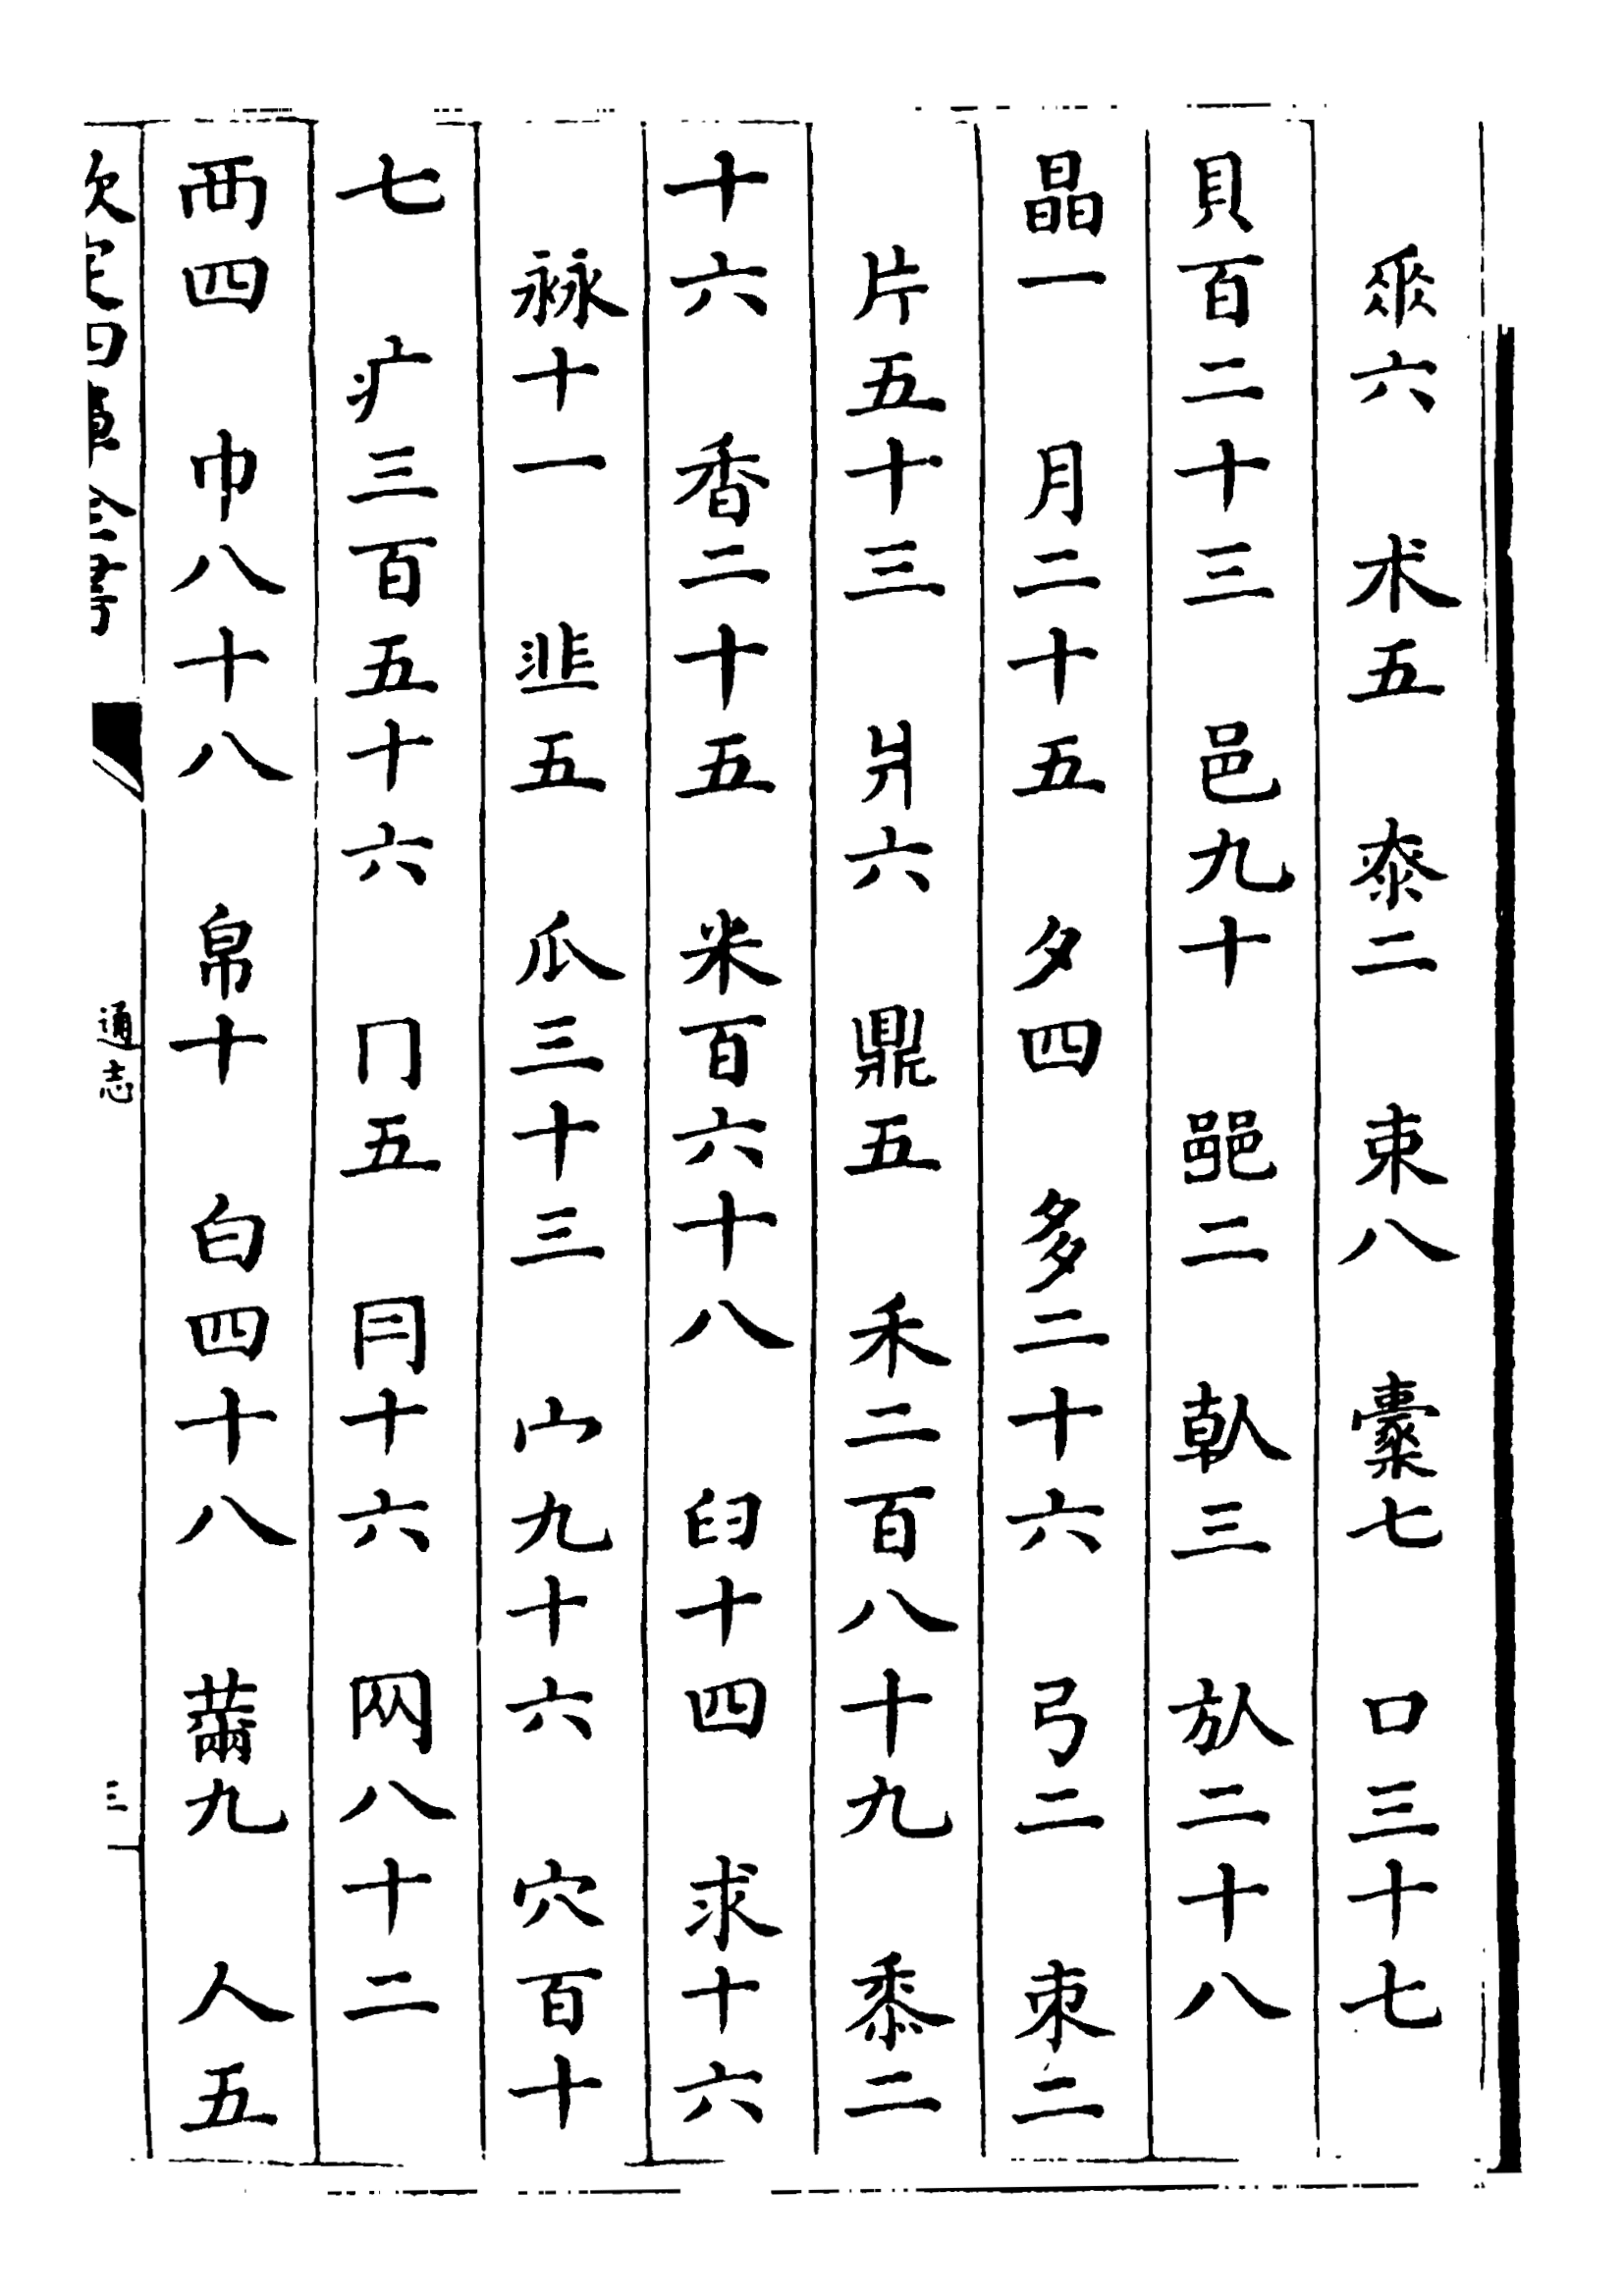 𠂹六　朩五　桼二　束八　橐七　口三十七
貝百二十三　邑九十　𨛜二　倝三　㫃二十八
晶一　月二十五　夕四　多二十六　弓二　朿二
片五十三　爿六　鼎五　禾二百八十九　黍二
十六　香二十五　米百六十八　臼十四　求十六
𣏟十一　韭五　瓜三十三　宀九十六　穴百十
七　疒三百五十六　冂五　冃十六　网八十二
襾四　巾八十八　帛十　白四十八　㡀九　人五
欽定四庫全書
通志
三